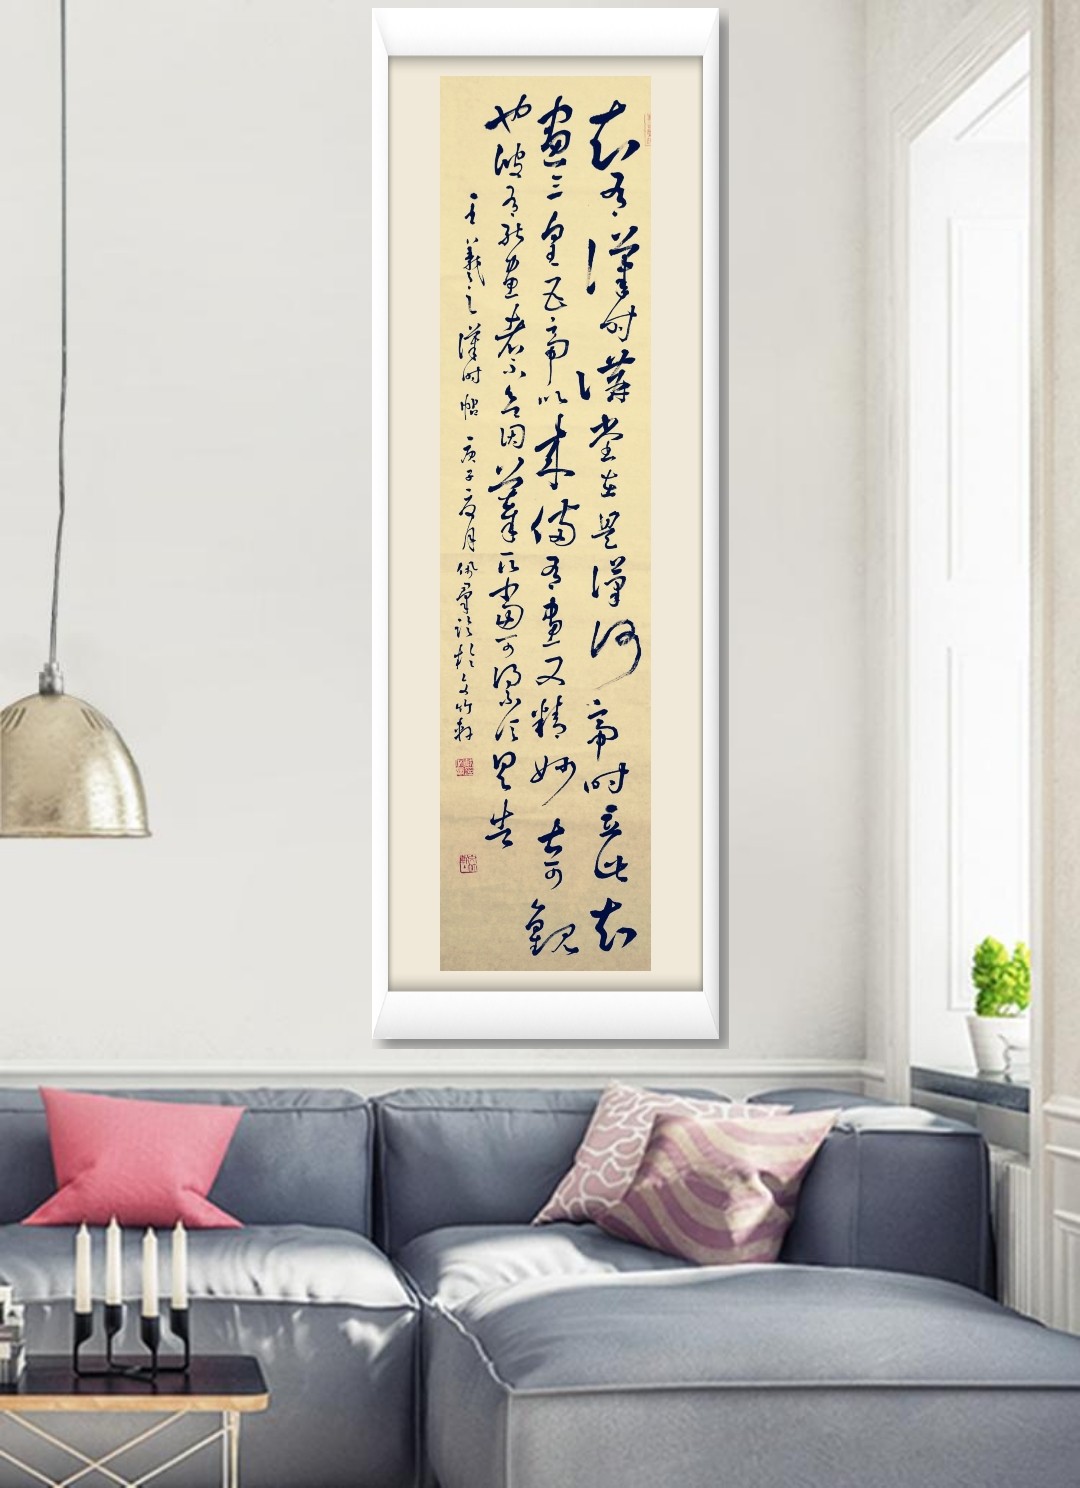 知有漢時講堂在是漢何帝時立此知
畫三皇五帝以來備有畫又精妙甚可觀
也彼有能畫者不欲因摹取當可得不信具告
王羲之漢時帖 庚子夏月佩羣臨於文竹軒